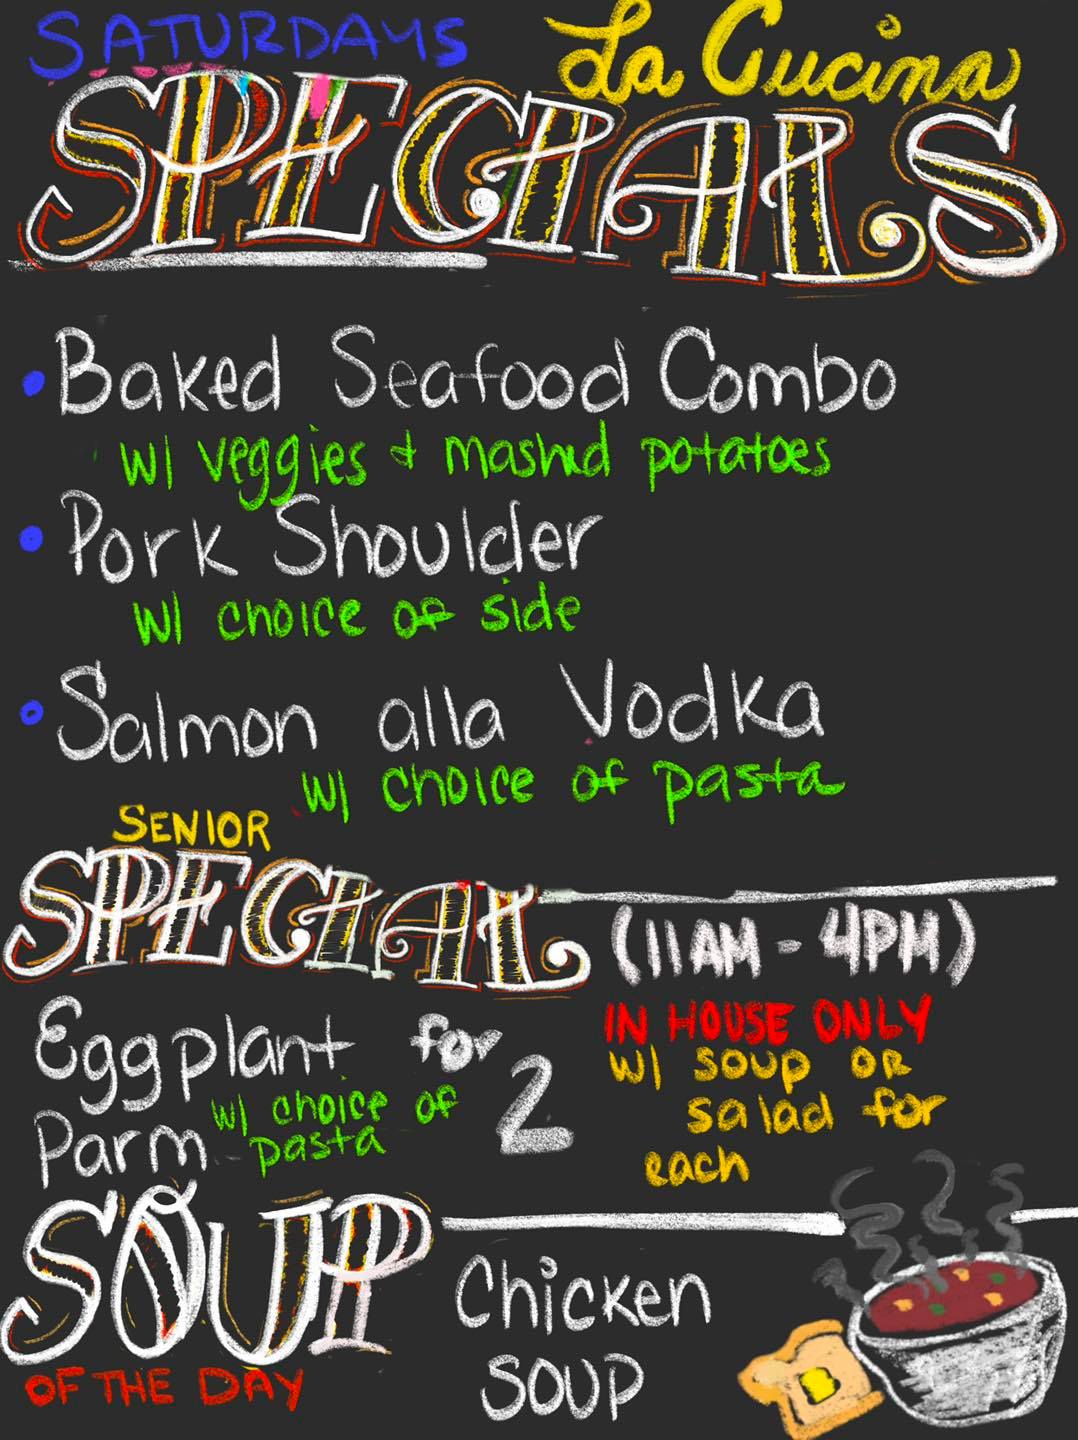 SATURDAYS La Cucina
SPECIALS
• Baked Seafood Combo
w/ veggies & mashed potatoes
• Pork Shoulder
w/ choice of side
• Salmon alla Vodka
w/ choice of pasta
SENIOR
SPECIAL
(11AM - 4PM)
Eggplant for 2
Parm w/ choice of
pasta
IN HOUSE ONLY
w/ soup OR
salad for
each
SOUP
OF THE DAY
Chicken
SOUP